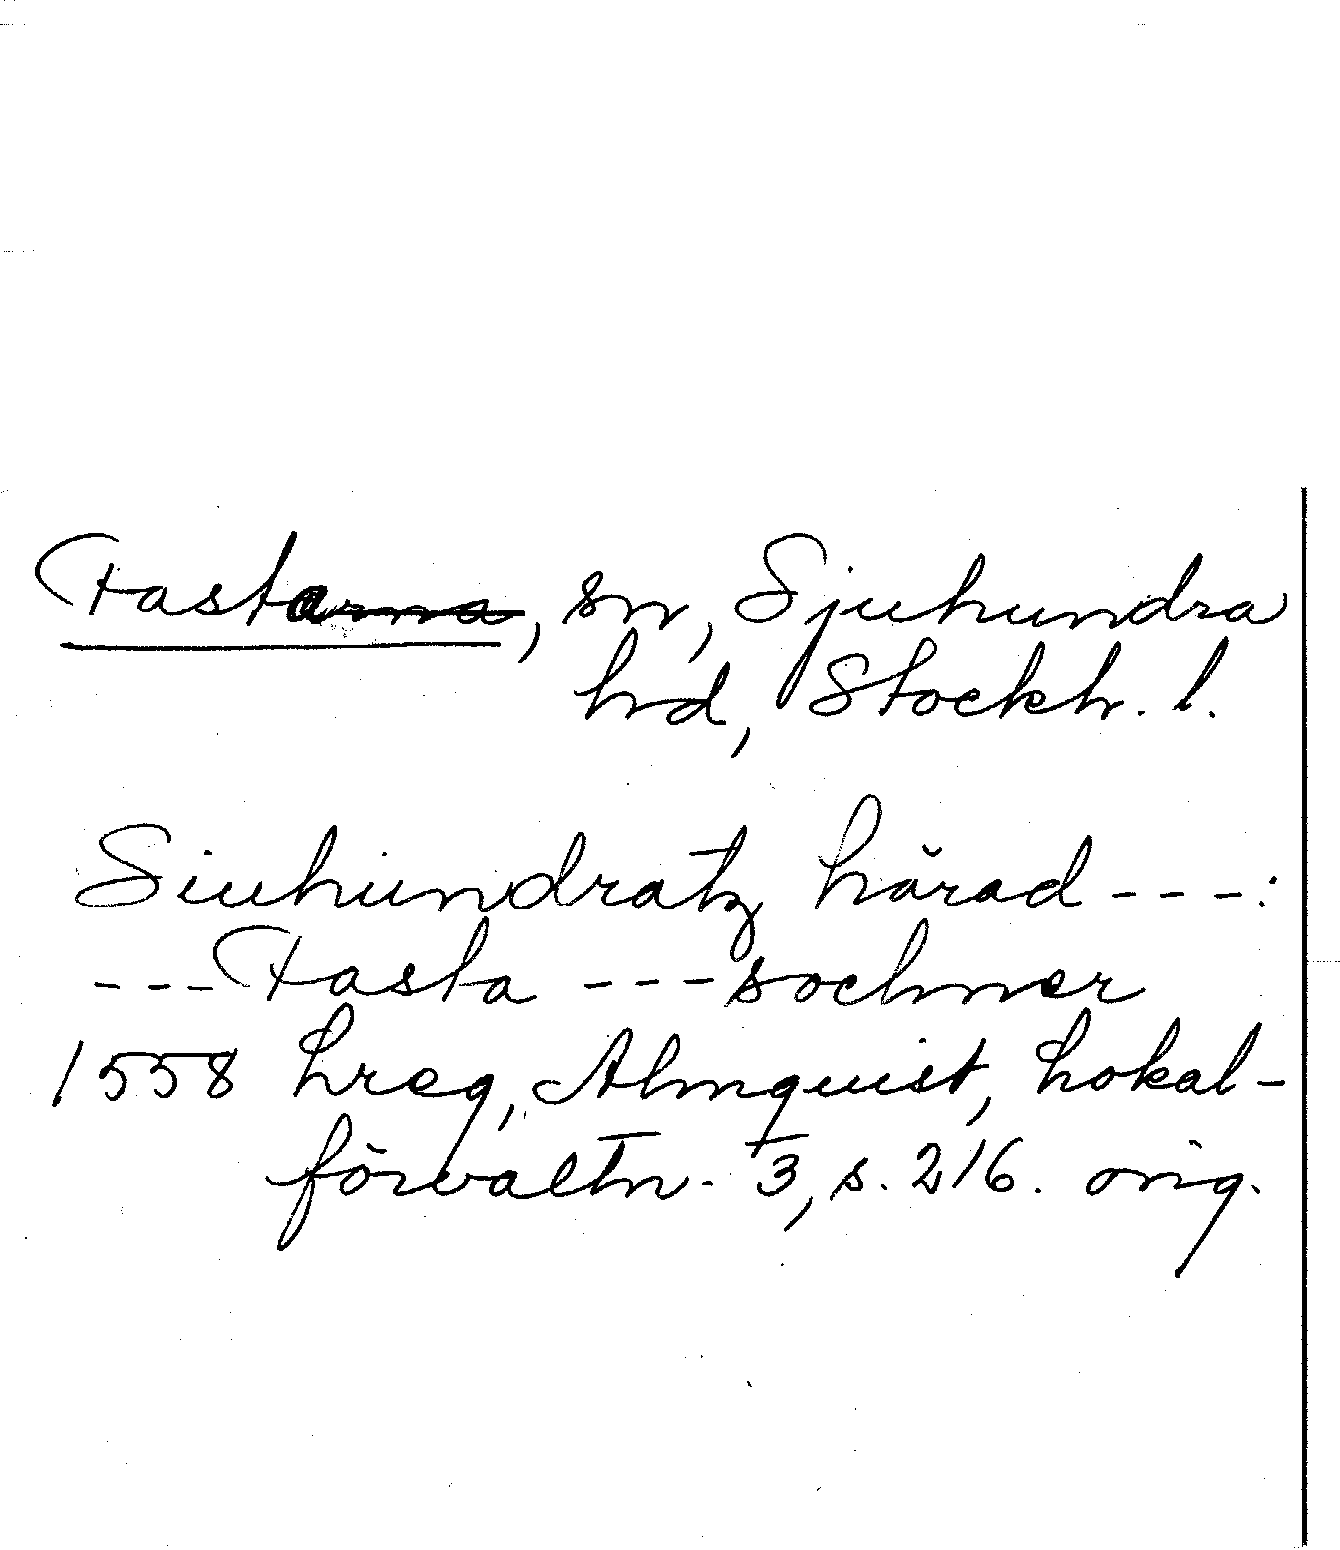 Fasta, sn, Sjuhundra
hd, Stockh. l.
Siuhundratz härad ---:
--- Fasta --- sochner
1558 hreg, Almquist, Lokal-
förvaltn. 3, s. 216. orig.